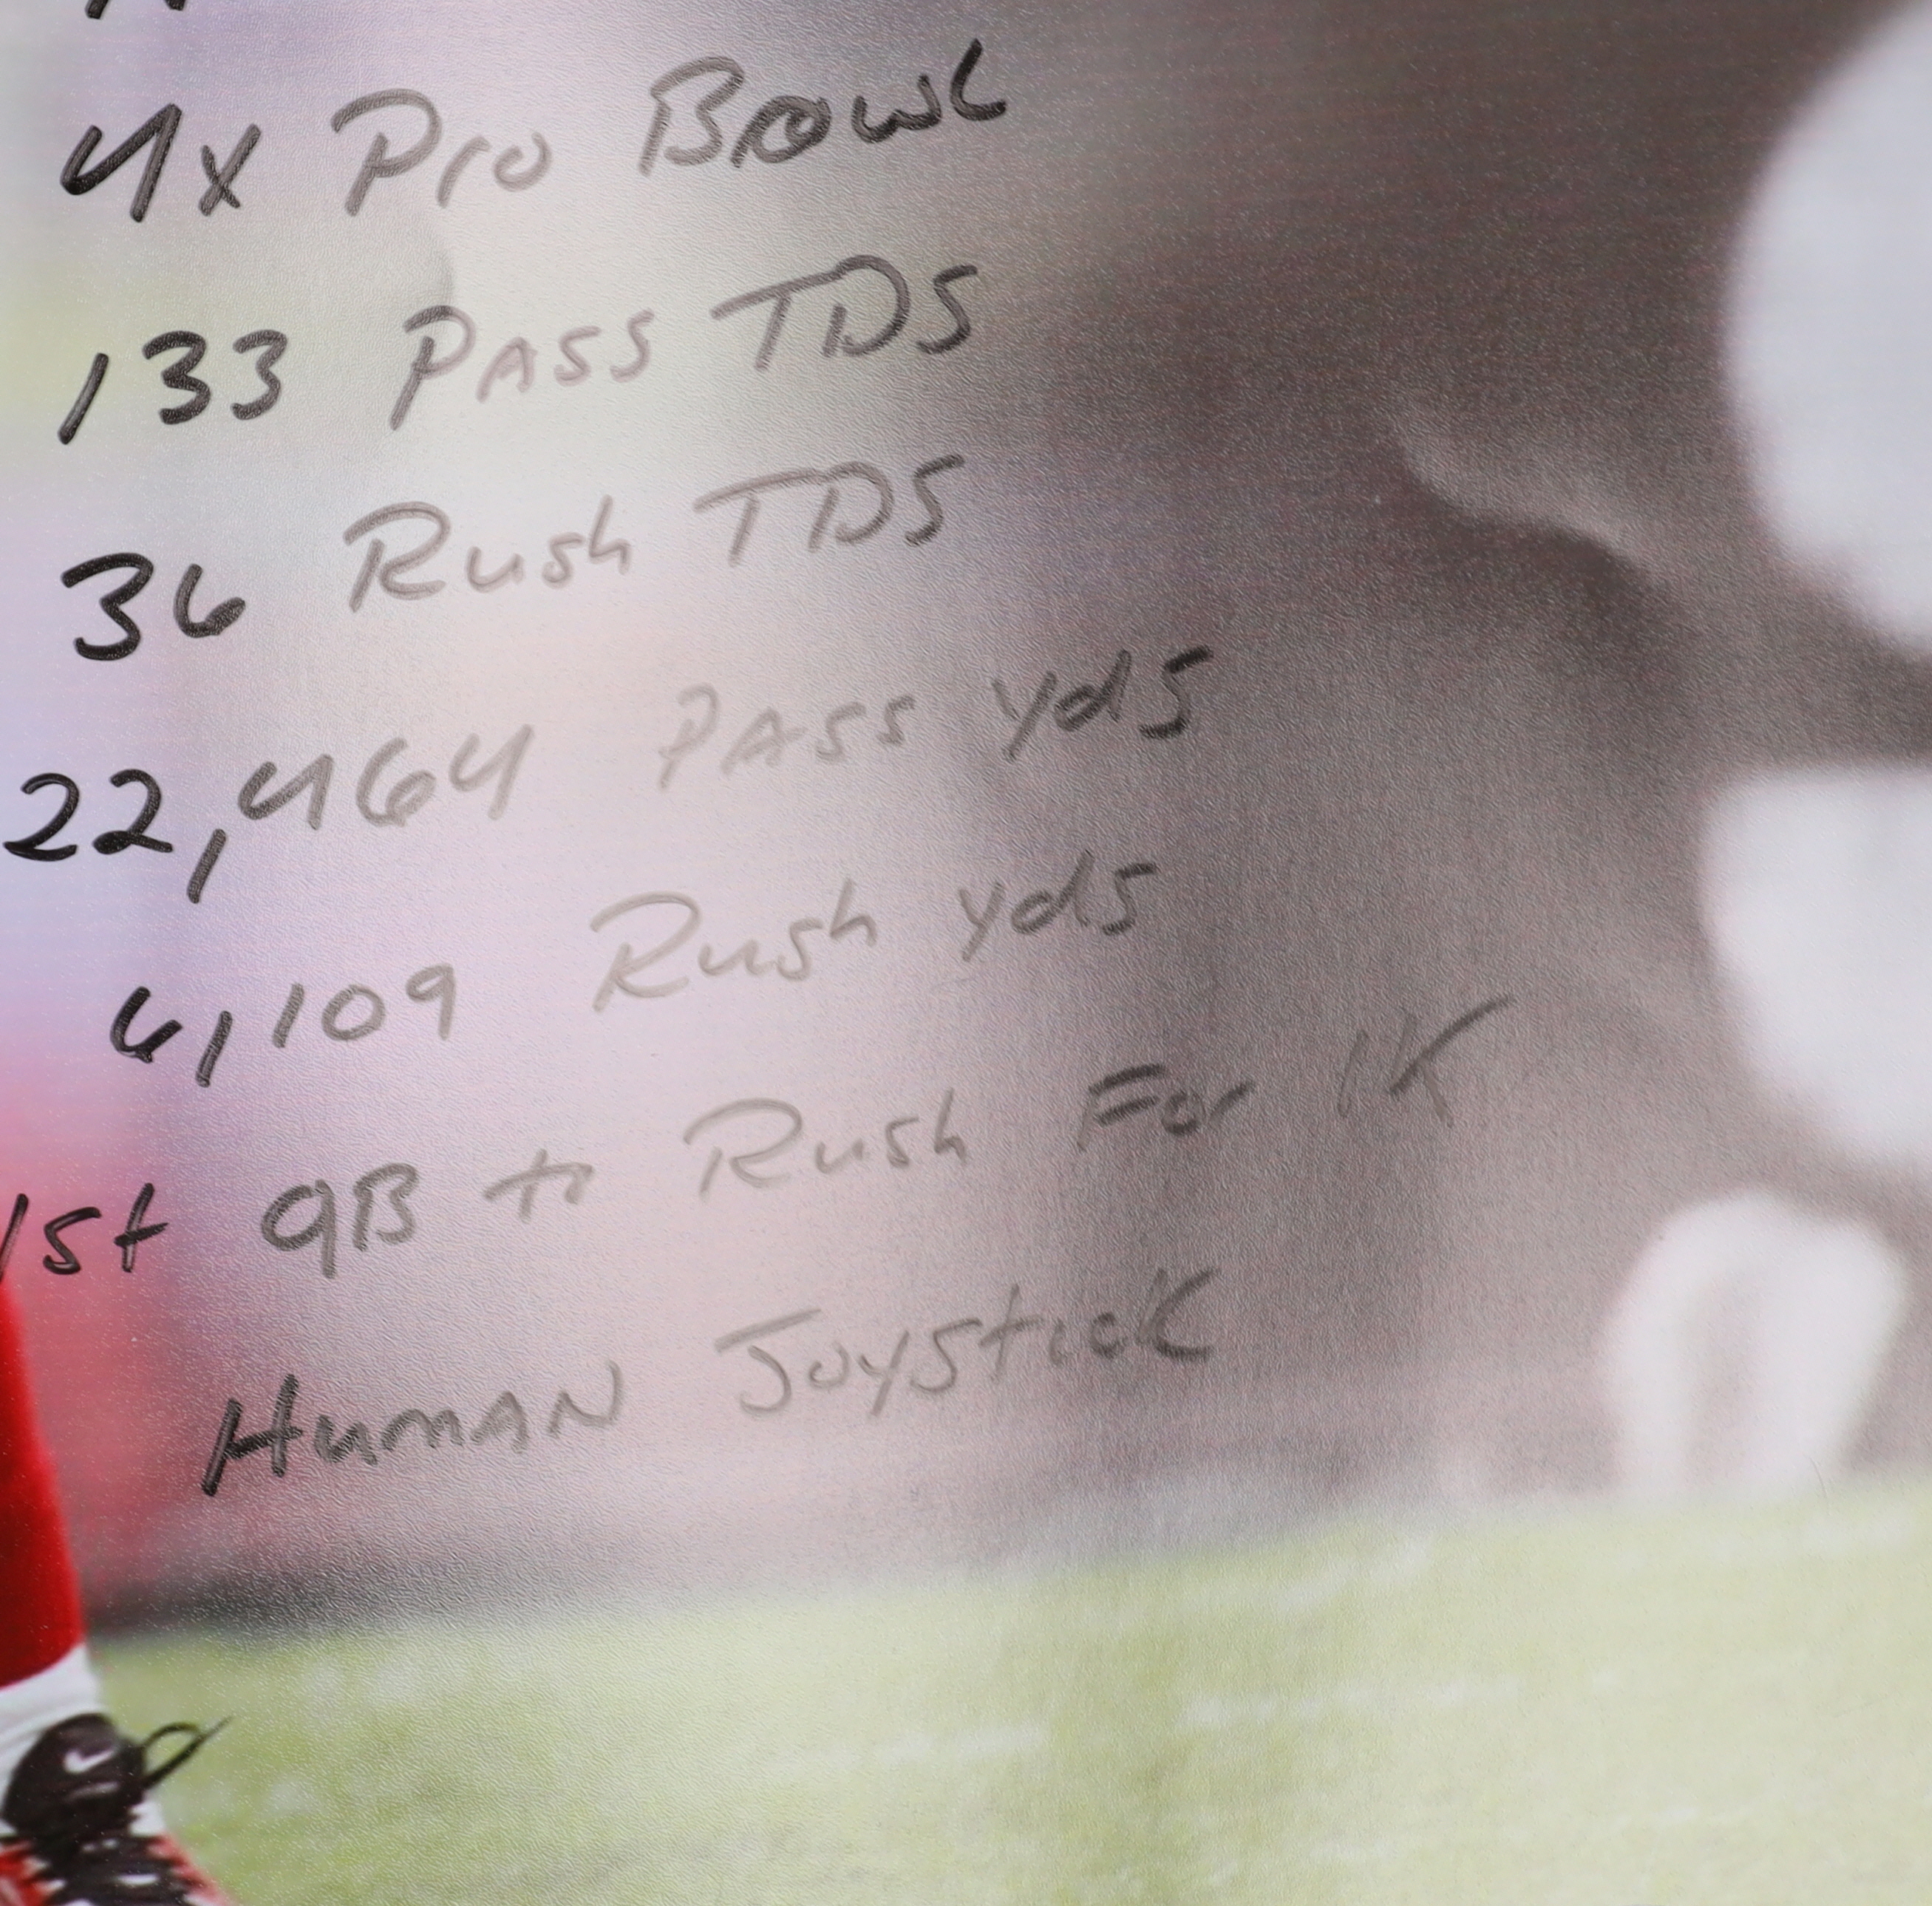 4x Pro Bowl
133 Pass TDS
36 Rush TDS
22,464 Pass yds
6,109 Rush yds
1st QB to Rush For 1K
Human Joystick